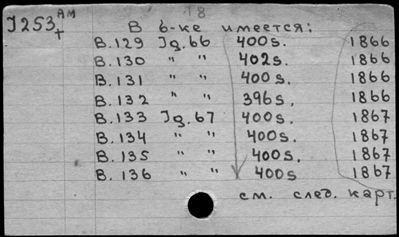 J253 AM
+
18
В б-ке имеется:
B.129 Jg.66 400s. 1866
B.130 " " 402s. 1866
B.131 " " 400s. 1866
B.132 " " 396s. 1866
B.133 Jg.67 400s. 1867
B.134 " " 400s. 1867
B.135 " " 400s. 1867
B.136 " " 400s 1867
см. след. карт.